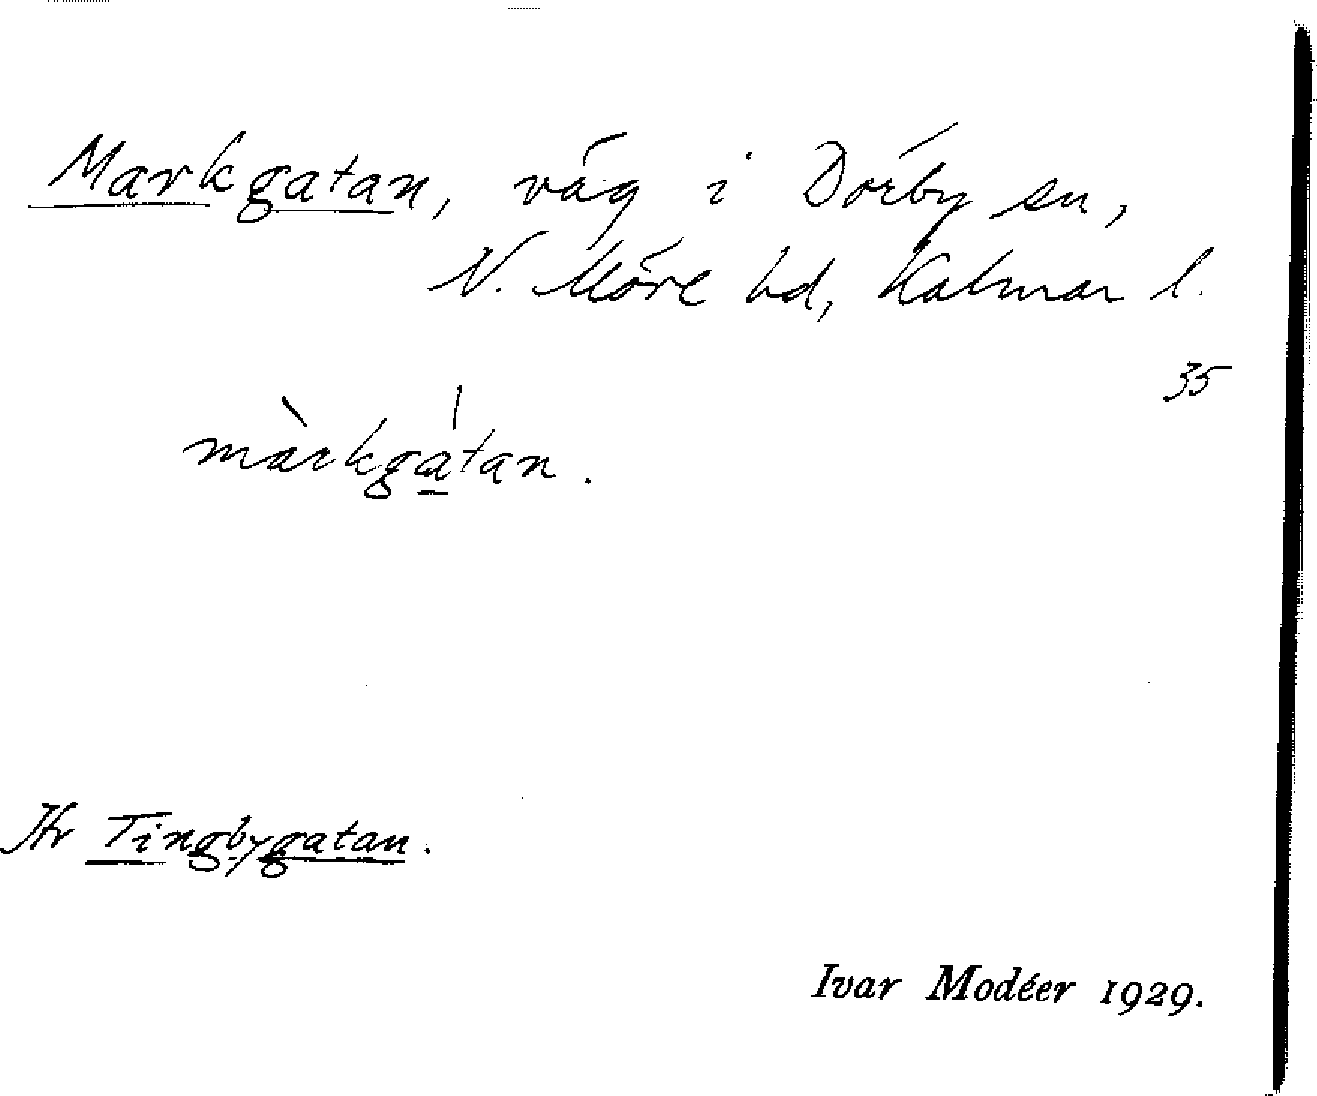 Markgatan, väg i Dörby sn,
N. Möre hd, Kalmar l.
35
màrkgátan.
Jfr Tingbygatan.
Ivar Modéer 1929.